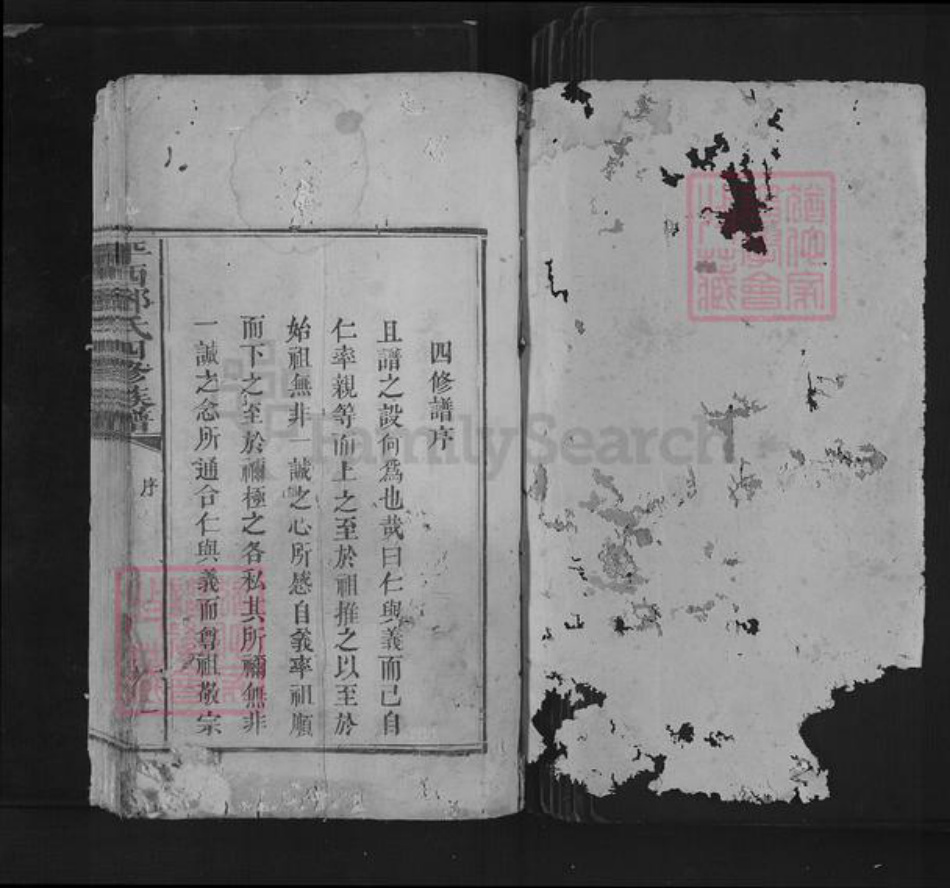 四修譜序
且譜之設何爲也哉曰仁與義而已自
仁率親等而上之至於祖推之以至於
始祖無非一誠之心所感自義率祖順
而下之至於禰極之各私其所禰無非
一誠之念所通合仁與義而尊祖敬宗
氏四修族譜
序
一
FamilySearch